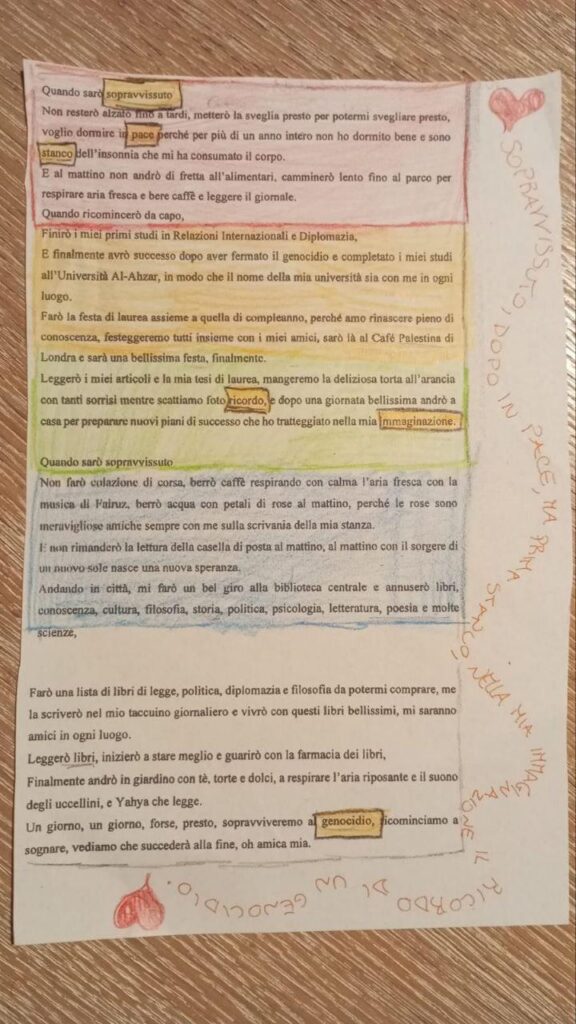 Quando sarò sopravvissuto
Non resterò alzato fino a tardi, metterò la sveglia presto per potermi svegliare presto,
voglio dormire in pace perché per più di un anno intero non ho dormito bene e sono
stanco dell'insonnia che mi ha consumato il corpo.
E al mattino non andrò di fretta all'alimentari, camminerò lento fino al parco per
respirare aria fresca e bere caffè e leggere il giornale.
Quando ricomincerò da capo,
Finirò i miei primi studi in Relazioni Internazionali e Diplomazia,
E finalmente avrò successo dopo aver fermato il genocidio e completato i miei studi
all'Università Al-Ahzar, in modo che il nome della mia università sia con me in ogni
luogo.
Farò la festa di laurea assieme a quella di compleanno, perché amo rinascere pieno di
conoscenza, festeggeremo tutti insieme con i miei amici, sarò là al Café Palestina di
Londra e sarà una bellissima festa, finalmente.
Leggerò i miei articoli e la mia tesi di laurea, mangeremo la deliziosa torta all'arancia
con tanti sorrisi mentre scattiamo foto ricordo, e dopo una giornata bellissima andrò a
casa per preparare nuovi piani di successo che ho tratteggiato nella mia immaginazione.
Quando sarò sopravvissuto
Non farò colazione di corsa, berrò caffè respirando con calma l'aria fresca con la
musica di Fairuz, berrò acqua con petali di rose al mattino, perché le rose sono
meravigliose amiche sempre con me sulla scrivania della mia stanza.
E non rimanderò la lettura della casella di posta al mattino, al mattino con il sorgere di
un nuovo sole nasce una nuova speranza.
Andando in città, mi farò un bel giro alla biblioteca centrale e annuserò libri,
conoscenza, cultura, filosofia, storia, politica, psicologia, letteratura, poesia e molte
scienze,
Farò una lista di libri di legge, politica, diplomazia e filosofia da potermi comprare, me
la scriverò nel mio taccuino giornaliero e vivrò con questi libri bellissimi, mi saranno
amici in ogni luogo.
Leggerò libri, inizierò a stare meglio e guarirò con la farmacia dei libri,
Finalmente andrò in giardino con tè, torte e dolci, a respirare l'aria riposante e il suono
degli uccellini, e Yahya che legge.
Un giorno, un giorno, forse, presto, sopravviveremo al genocidio, ricominciamo a
sognare, vediamo che succederà alla fine, oh amica mia.
SOPRAVVISSUTO, DOPO IN PACE, MA PRIMA
STANCO, NELLA MIA IMMAGINAZIONE IL
RICORDO DI UN GENOCIDIO.